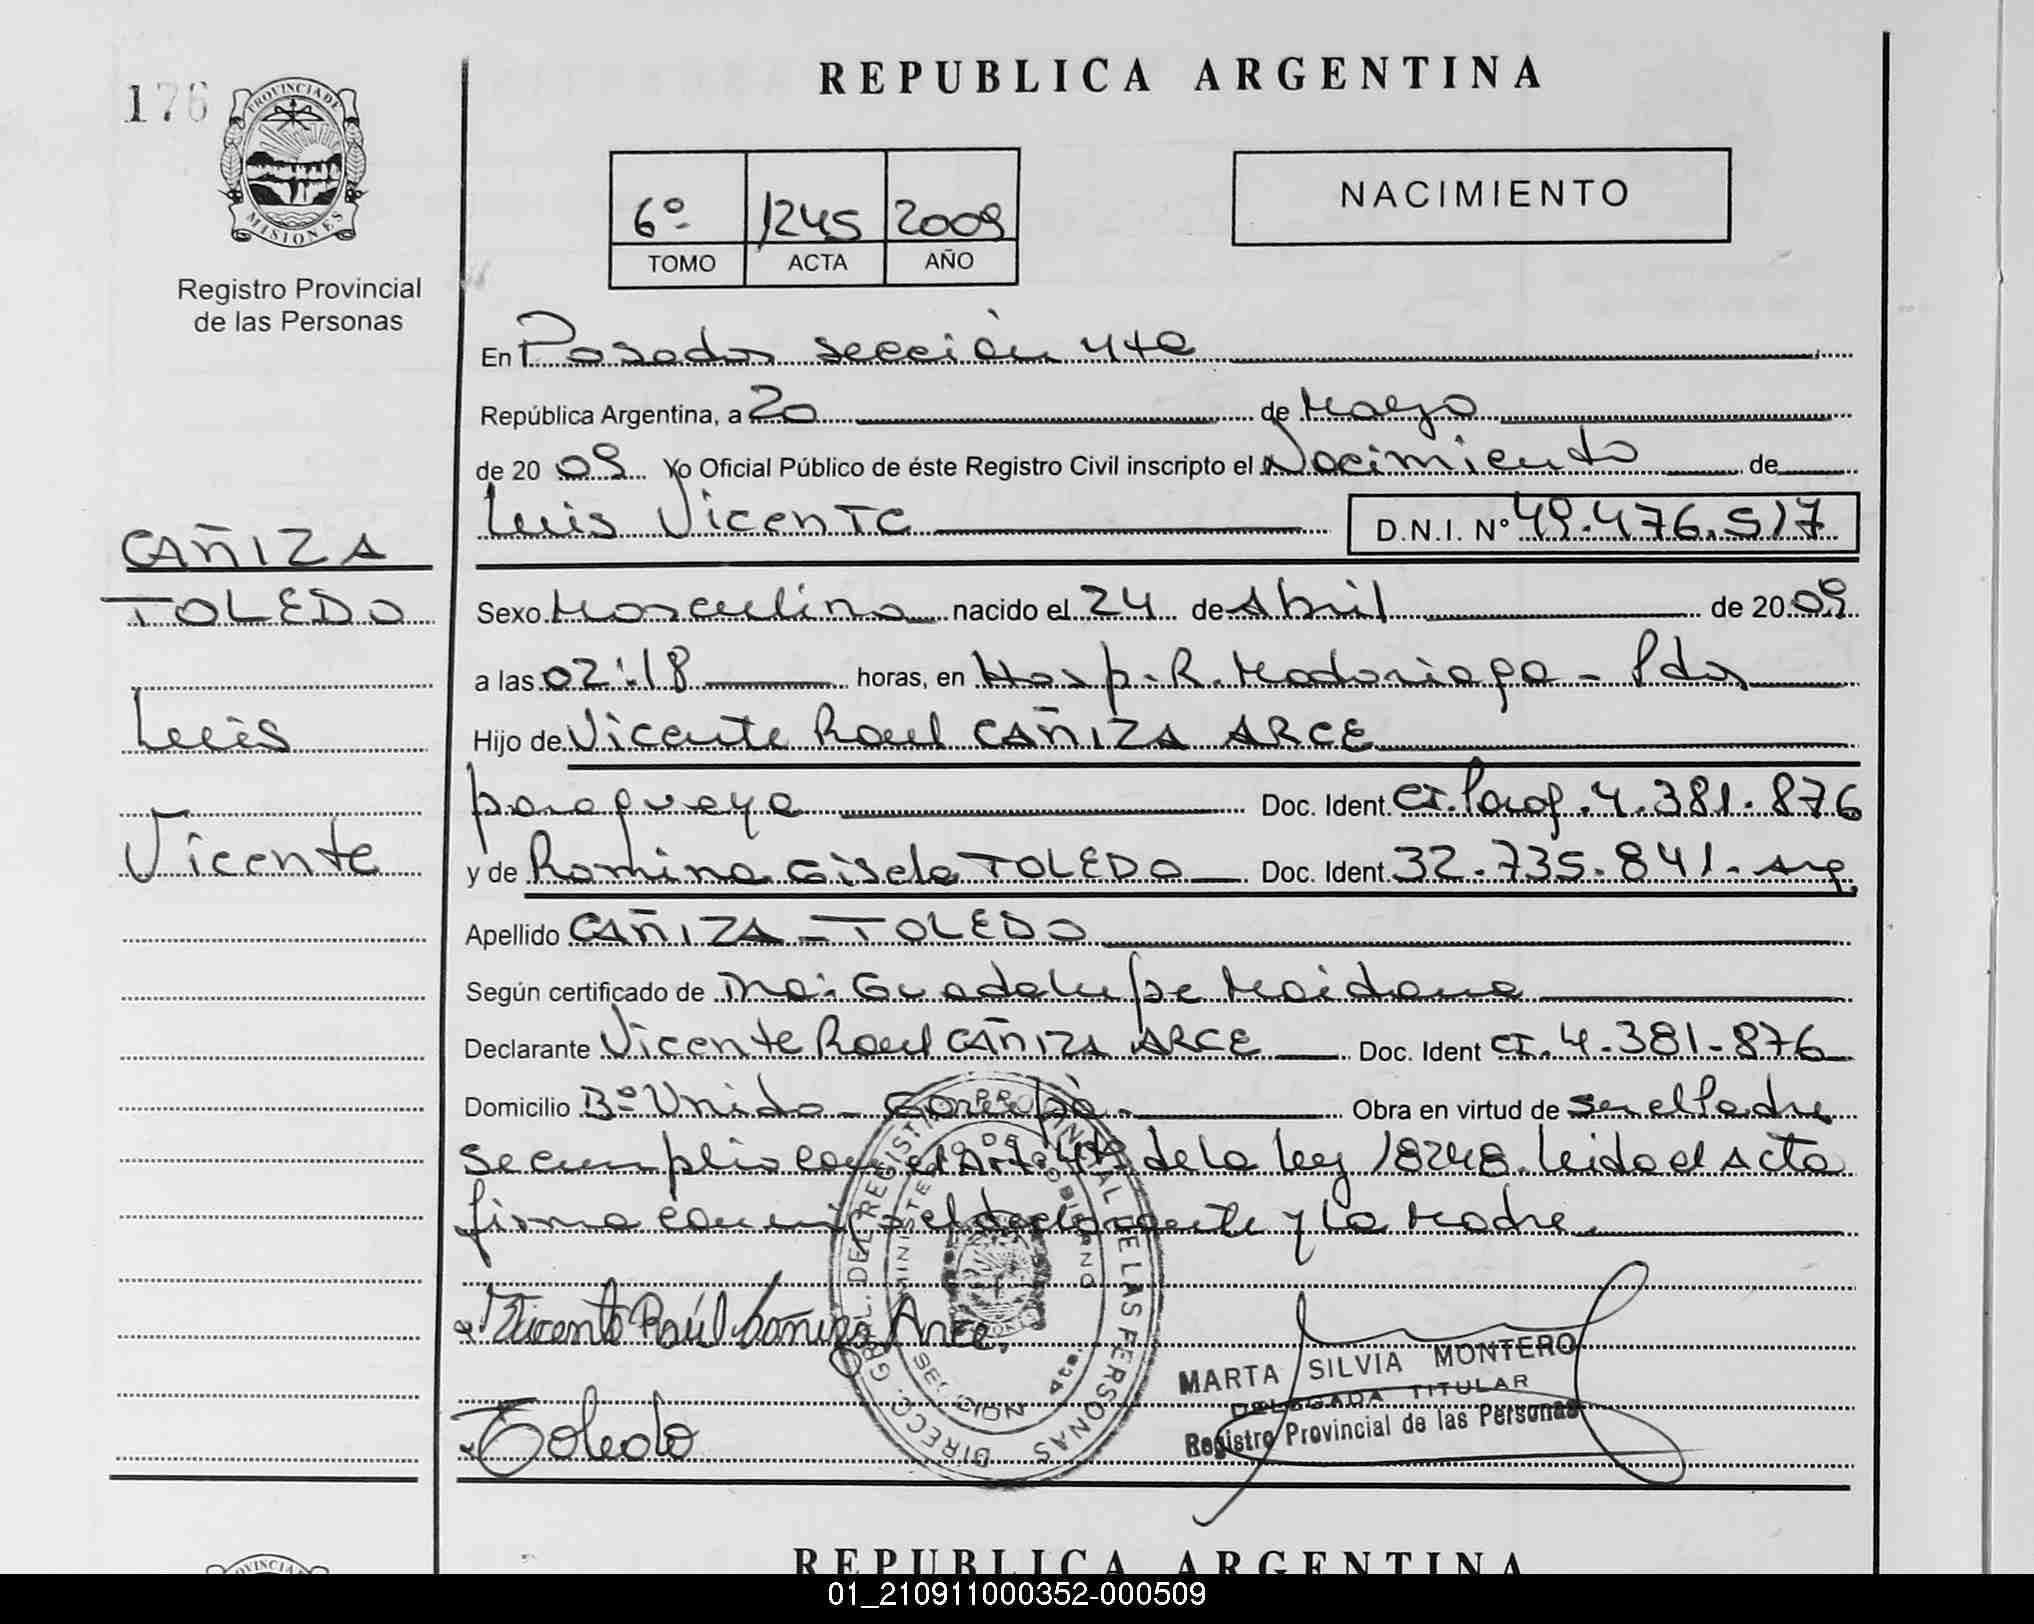 REPUBLICA ARGENTINA
176
PROVINCIA DE
MISIONES
Registro Provincial
de las Personas
6º 1245 2009
TOMO ACTA AÑO
NACIMIENTO
En Posadas sección 4ta
República Argentina, a 20 de Mayo
de 20 09 Yo Oficial Público de éste Registro Civil inscripto el Nacimiento de
Luis Vicente D.N.I. Nº 49.476.517
CAÑIZA
TOLEDO
Luis
Vicente
Sexo Masculino nacido el 24 de Abril de 20 09
a las 02:18 horas, en Hosp. R. Madariaga - Pdas
Hijo de Vicente Raul CAÑIZA ARCE
paraguaya Doc. Ident. CI. Parag. 4.381.876
y de Romina Gisela TOLEDO Doc. Ident. 32.735.841. Arg
Apellido CAÑIZA - TOLEDO
Según certificado de Ma. Guadalupe Maidana
Declarante Vicente Raul CAÑIZA ARCE Doc. Ident CI. 4.381.876
Domicilio Bº Unido - Garupá. Obra en virtud de ser el Padre
se cumplio con el Art. 4to de la ley 18248. leida el Acta
firma conmigo el declarante y la Madre
Vicente Raúl Cañiza Arce,
Toledo
DIRECC. GRAL. DEL REGISTRO PROVINCIAL DE LAS PERSONAS
MINISTERIO DE GOBIERNO
SECCION 4ta.
MARTA SILVIA MONTERO
DELEGADA TITULAR
Registro Provincial de las Personas
REPUBLICA ARGENTINA
01_210911000352-000509